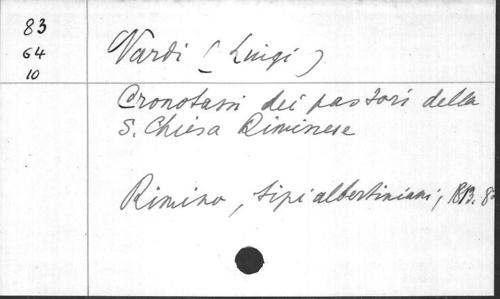 83
64
10
Nardi (Luigi)
Cronotassi dei pastori della
S. Chiesa Riminese
Rimino, tipi albertiniani,